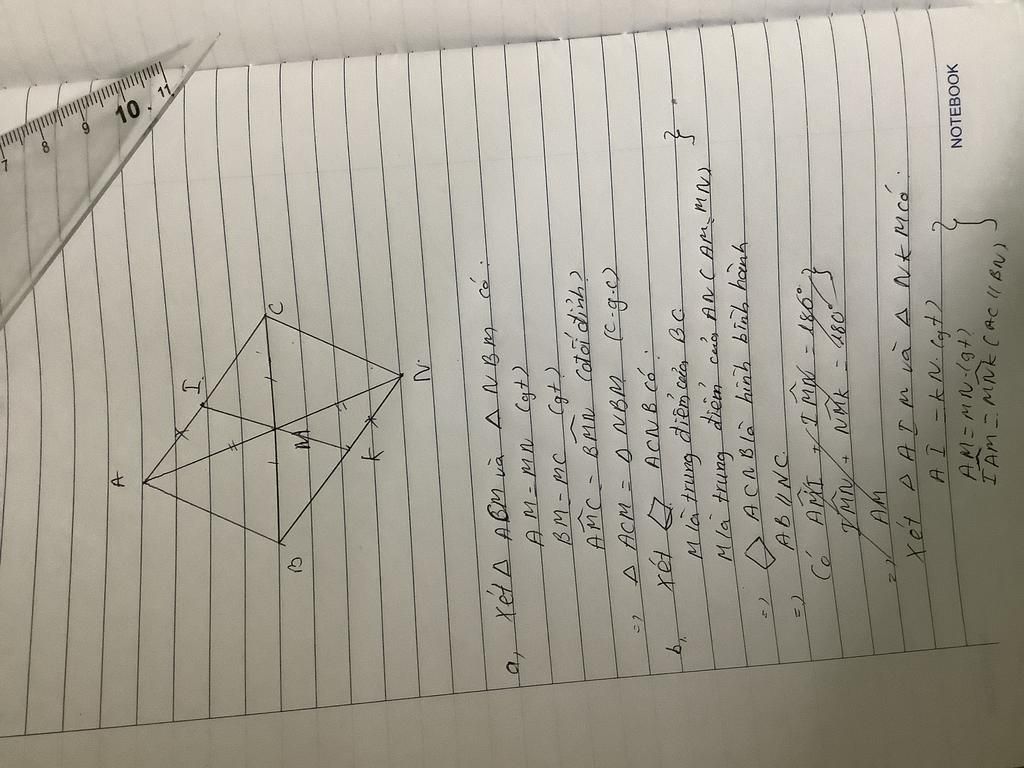 7 8 9 10 11
A
I
C
B
M
K
N
a, Xét Δ ABM và Δ NBM có.
AM = MN (gt)
BM = MC (gt)
AMC = BMN (đối đỉnh)
=> Δ ACM = Δ NBM (c-g-c)
b, Xét ▱ ACNB có.
M là trung điểm của BC }
M là trung điểm của AN (AM = MN)
=> ▱ ACNB là hình bình hành
=> AB // NC.
Có AMI + IMN = 180° }
IMN + NMK = 180°
=> AM
Xét Δ AIM và Δ NKM có.
AI = KN (gt) }
AM = MN (gt)
IAM = MNK (AC // BN)
NOTEBOOK